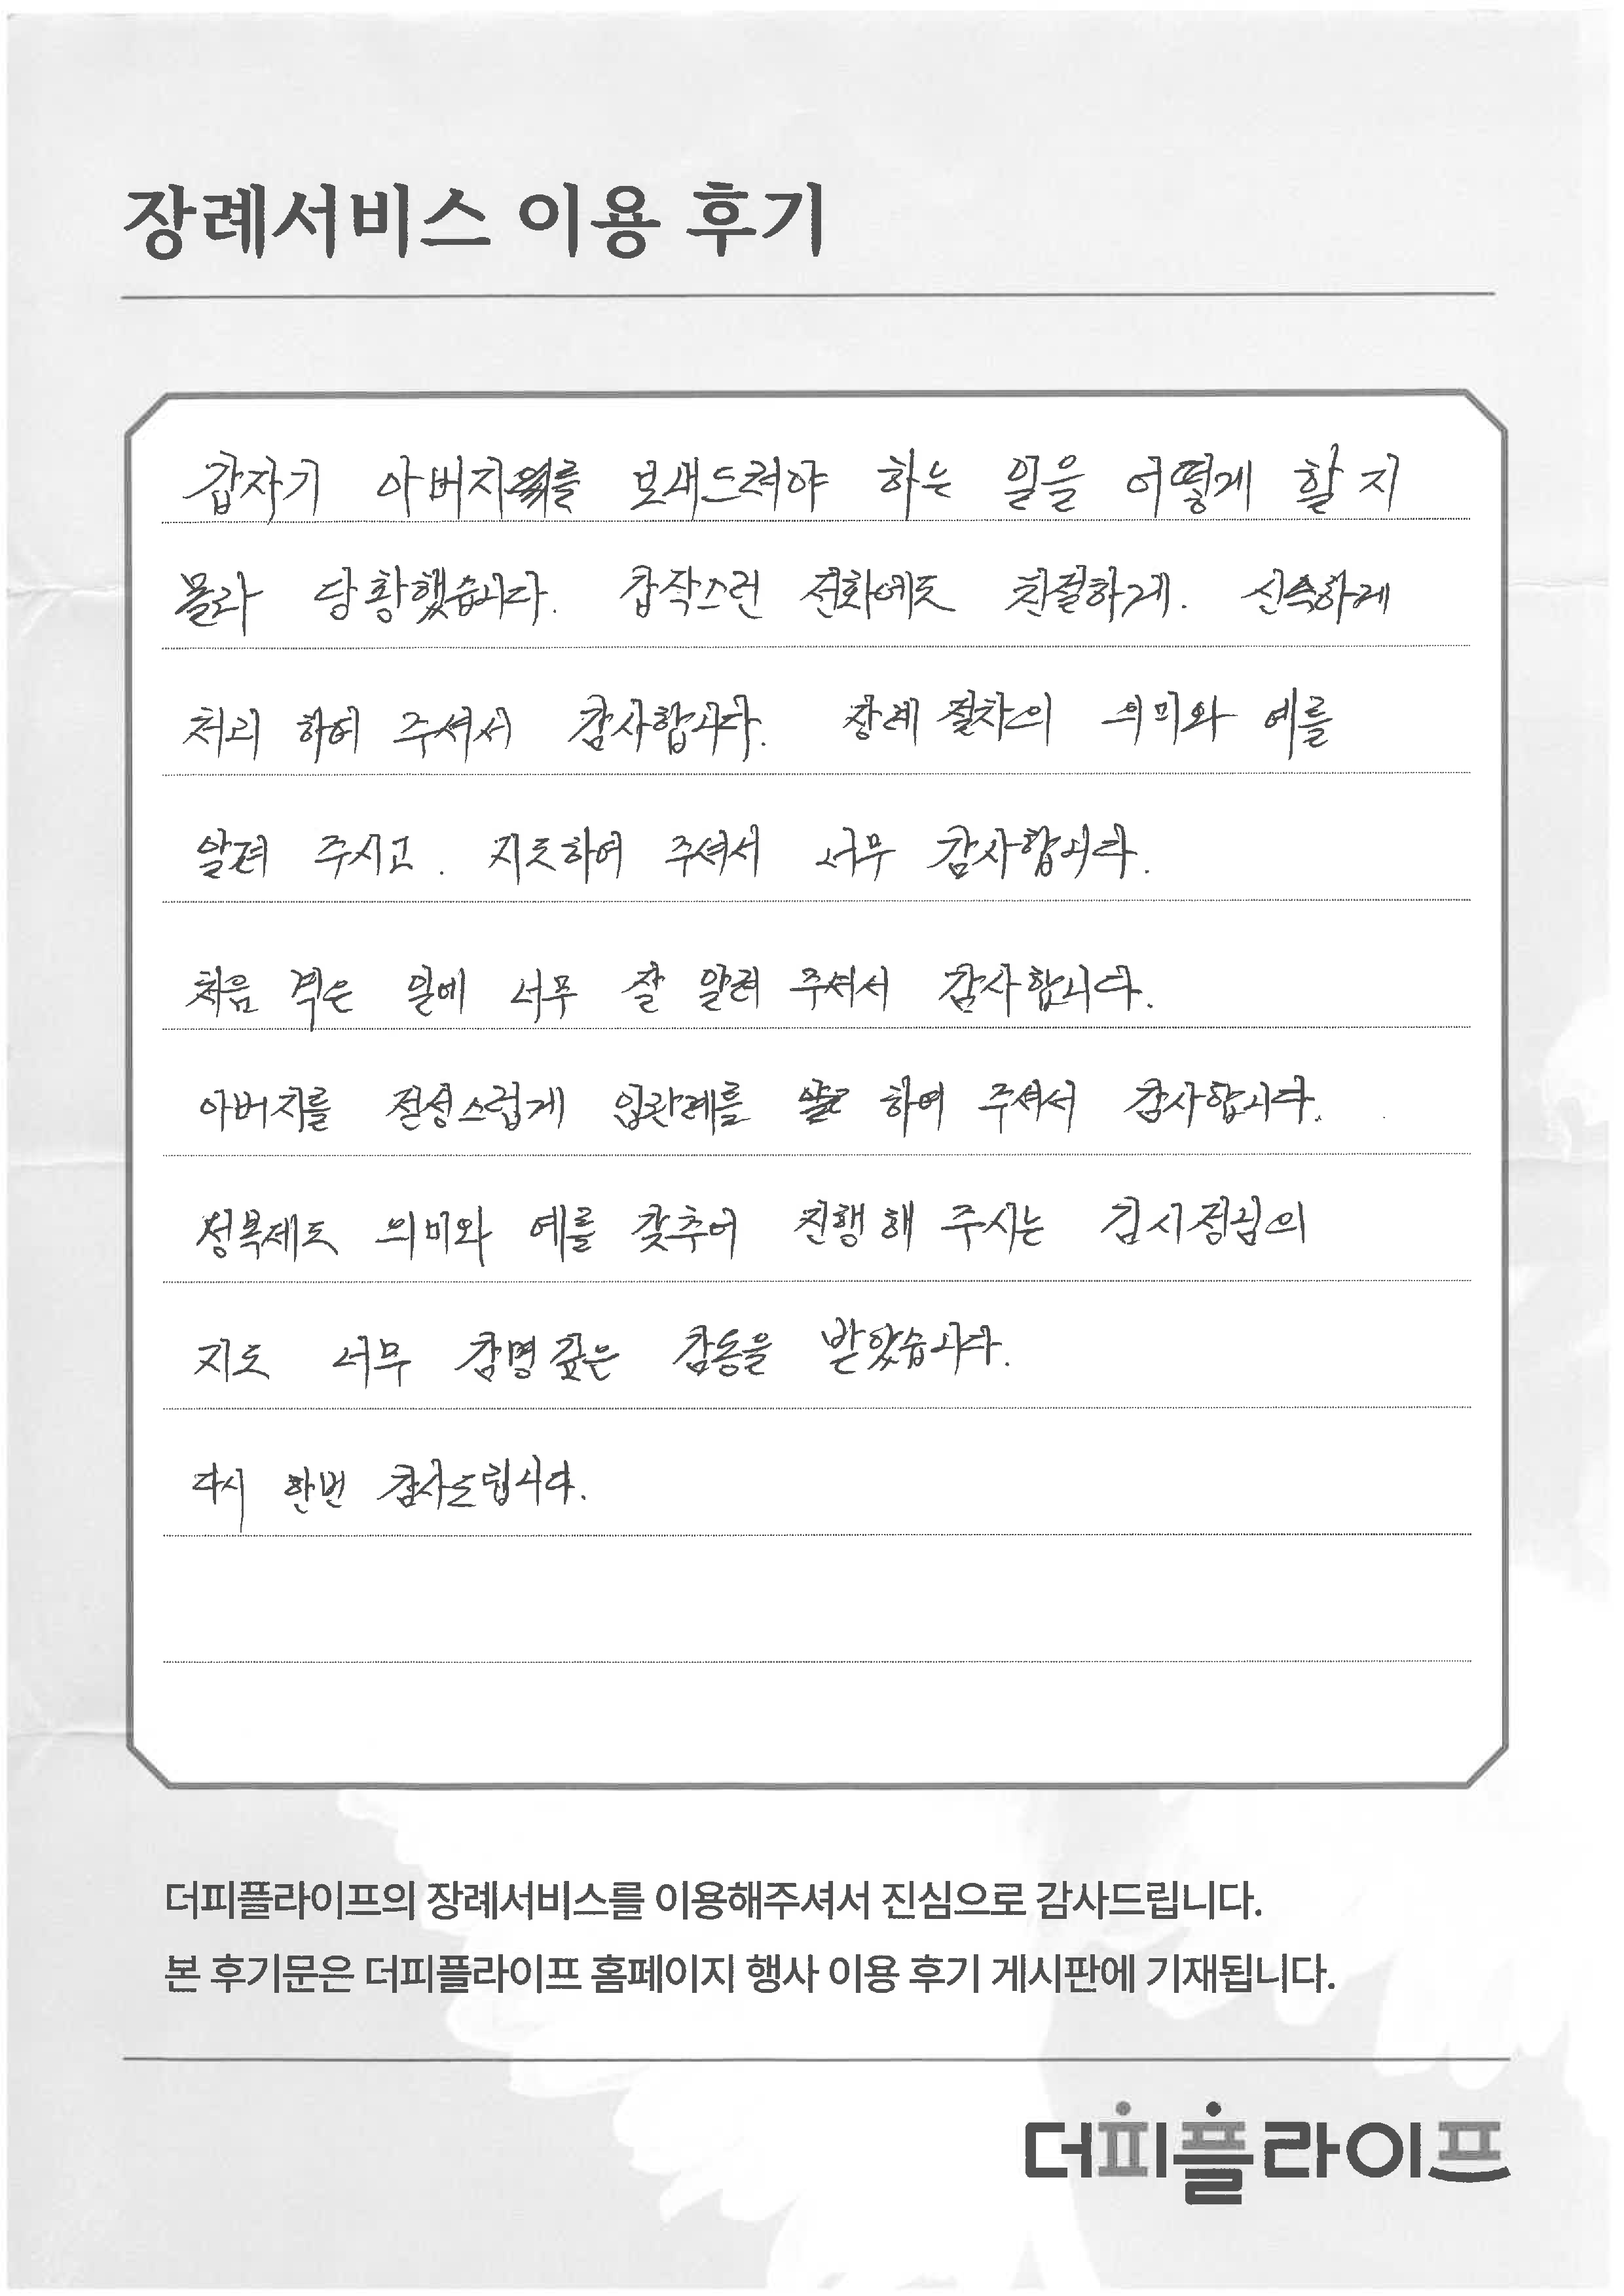 장례서비스 이용 후기
갑자기 아버지를 보내드려야 하는 일을 어떻게 할지
몰라 당황했습니다. 갑작스런 전화에도 친절하게. 신속하게
처리 하여 주셔서 감사합니다. 장례 절차의 의미와 예를
알려 주시고. 지도하여 주셔서 너무 감사합니다.
처음 겪은 일에 너무 잘 알려 주셔서 감사합니다.
아버지를 정성스럽게 입관례를 하여 주셔서 감사합니다.
성복제도 의미와 예를 갖추어 진행해 주시는 김시정님의
지도 너무 감명깊은 감동을 받았습니다.
다시 한번 감사드립니다.
더피플라이프의 장례서비스를 이용해주셔서 진심으로 감사드립니다.
본 후기문은 더피플라이프 홈페이지 행사 이용 후기 게시판에 기재됩니다.
더피플라이프